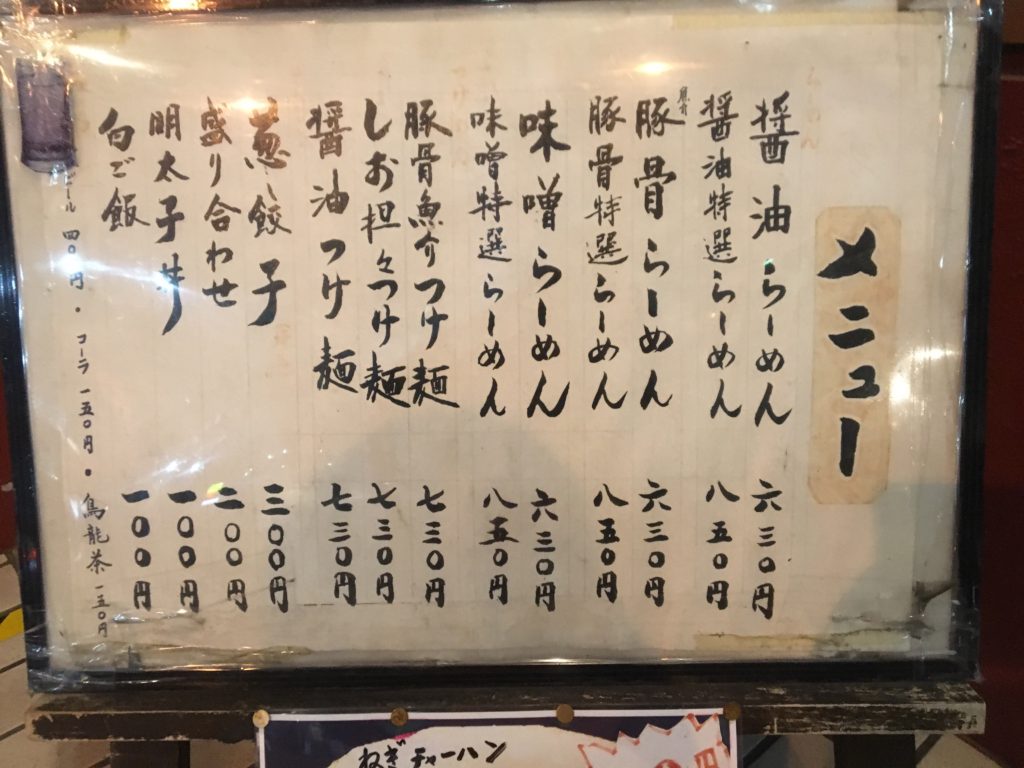 メニュー
醤油らーめん 六三〇円
醤油特選らーめん 八五〇円
豚骨らーめん 六三〇円
豚骨特選らーめん 八五〇円
味噌らーめん 六三〇円
味噌特選らーめん 八五〇円
豚骨魚介つけ麺 七三〇円
しお担々つけ麺 七三〇円
醤油つけ麺 七三〇円
葱餃子 三〇〇円
盛り合わせ 二〇〇円
明太子丼 一〇〇円
白ご飯 一〇〇円
ール 四〇円・コーラ 一五〇円・烏龍茶 一五〇円
ねぎチャーハン
円